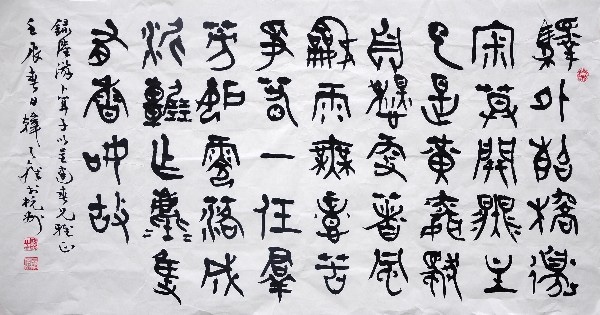 驛外斷橋邊
寂莫開無主
已是黃昏獨
自愁更著風
龢雨無意苦
爭春一任羣
芳妒零落成
泥碾作塵隻
有香如故
錄陸游卜算子以呈春兄雅正
壬辰春日韓天雍於杭州